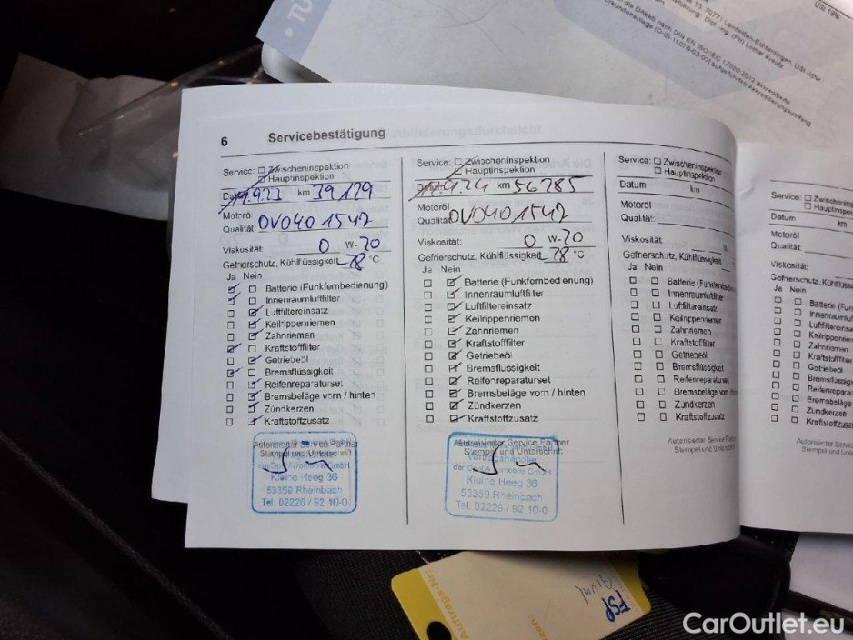 6 Servicebestätigung
Service: Zwischeninspektion
Hauptinspektion
km 39179
Motoröl
Qualität: OVO401547
Viskosität: 0 W-20
Gefrierschutz, Kühlflüssigkeit -28 °C
Ja Nein
Batterie (Funkfernbedienung)
Innenraumluftfilter
Luftfiltereinsatz
Keilrippenriemen
Zahnriemen
Kraftstofffilter
Getriebeöl
Bremsflüssigkeit
Reifenreparaturset
Bremsbeläge vorn / hinten
Zündkerzen
Kraftstoffzusatz
Autorisierter Service Partner
Stempel und Unterschrift
Kleine Heeg 36
53359 Rheinbach
Tel. 02226 / 92 10-0
Service: Zwischeninspektion
Hauptinspektion
Datum 9.24 km 56785
Motoröl
Qualität: OVO401547
Viskosität: 0 W-20
Gefrierschutz, Kühlflüssigkeit -28 °C
Ja Nein
Batterie (Funkfernbedienung)
Innenraumluftfilter
Luftfiltereinsatz
Keilrippenriemen
Zahnriemen
Kraftstofffilter
Getriebeöl
Bremsflüssigkeit
Reifenreparaturset
Bremsbeläge vorn / hinten
Zündkerzen
Kraftstoffzusatz
Autorisierter Service Partner
Stempel und Unterschrift
Kleine Heeg 36
53359 Rheinbach
Tel. 02226 / 92 10-0
Service: Zwischeninspektion
Hauptinspektion
Datum km
Motoröl
Qualität:
Viskosität: W-
Gefrierschutz, Kühlflüssigkeit
Ja Nein
Batterie (Funkfernbed
Innenraumluftfilter
Luftfiltereinsatz
Keilrippenriemen
Zahnriemen
Kraftstofffilter
Getriebeöl
Bremsflüssigkeit
Reifenreparaturset
Bremsbeläge vorn /
Zündkerzen
Kraftstoffzusatz
Autorisierter Service
Stempel und Unterschrift
Service: Zwischeninspe
Hauptinspe
Datum km
Motoröl
Qualität:
Viskosität:
Gefrierschutz, Kühlflüss
Ja Nein
Batterie (Fun
Innenraumluf
Luftfiltereinsa
Keilrippenrie
Zahnriemen
Kraftstofffilt
Getriebeöl
Bremsflüssig
Reifenrepara
Bremsbeläge
Zündkerzen
Kraftstoffzus
Autorisierter Ser
Stempel und Unt
Auftrags-Nr.
FSP
CarOutlet.eu